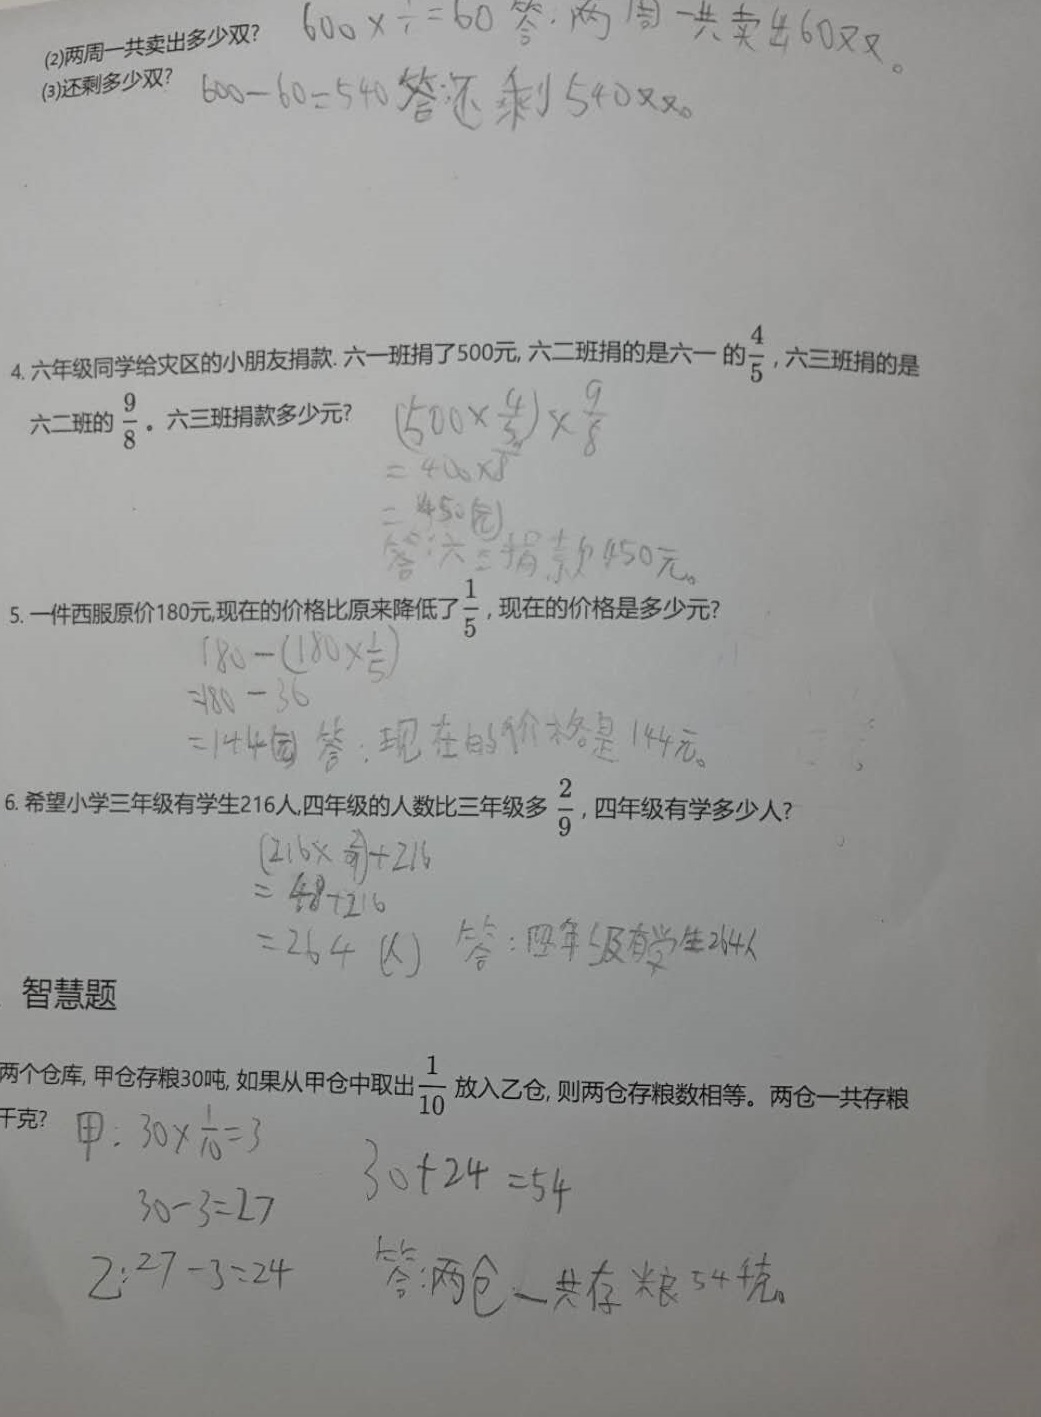 (2)两周一共卖出多少双? 600×÷=60 答:两周一共卖出60双。
(3)还剩多少双? 600-60=540 答:还剩540双。
4. 六年级同学给灾区的小朋友捐款. 六一班捐了500元, 六二班捐的是六一 的4/5, 六三班捐的是
六二班的 9/8 。六三班捐款多少元? (500×4/5)×9/8
=400×9/8
=450(元)
答:六三捐款450元。
5. 一件西服原价180元,现在的价格比原来降低了1/5, 现在的价格是多少元?
180-(180×1/5)
=180-36
=144(元) 答:现在的价格是144元。
6. 希望小学三年级有学生216人,四年级的人数比三年级多 2/9, 四年级有学多少人?
(216×2/9)+216
=48+216
=264(人) 答:四年级有学生264人
智慧题
两个仓库, 甲仓存粮30吨, 如果从甲仓中取出1/10 放入乙仓, 则两仓存粮数相等。两仓一共存粮
千克? 甲:30×1/10=3
30-3=27
乙:27-3=24
30+24=54
答:两仓一共存粮54千克。